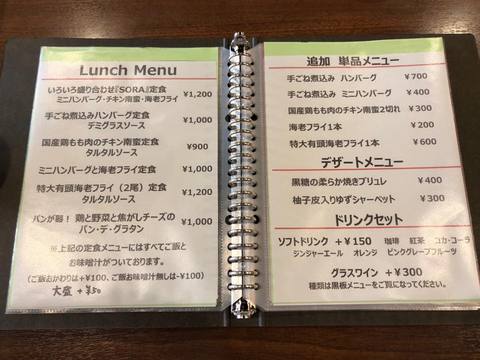 Lunch Menu
いろいろ盛り合わせ『SORA』定食
ミニハンバーグ・チキン南蛮・海老フライ ¥1,200
手ごね煮込みハンバーグ定食
デミグラスソース ¥1,000
国産鶏もも肉のチキン南蛮定食
タルタルソース ¥900
ミニハンバーグと海老フライ定食 ¥1,000
特大有頭海老フライ(2尾)定食
タルタルソース ¥1,200
パンが器!鶏と野菜と焦がしチーズの
パン・デ・グラタン ¥1,000
※上記の定食メニューにはすべてご飯と
お味噌汁がついております。
(ご飯おかわりは+¥100、ご飯お味噌汁無しは-¥100)
大盛 +¥50
追加 単品メニュー
手ごね煮込み ハンバーグ ¥700
手ごね煮込み ミニハンバーグ ¥400
国産鶏もも肉のチキン南蛮2切れ ¥300
海老フライ1本 ¥200
特大有頭海老フライ1本 ¥600
デザートメニュー
黒糖の柔らか焼きブリュレ ¥400
柚子皮入りゆずシャーベット ¥300
ドリンクセット
ソフトドリンク +¥150 珈琲 紅茶 コカ・コーラ
ジンジャーエール オレンジ ピンクグレープフルーツ
グラスワイン +¥300
種類は黒板メニューをご覧になってください。